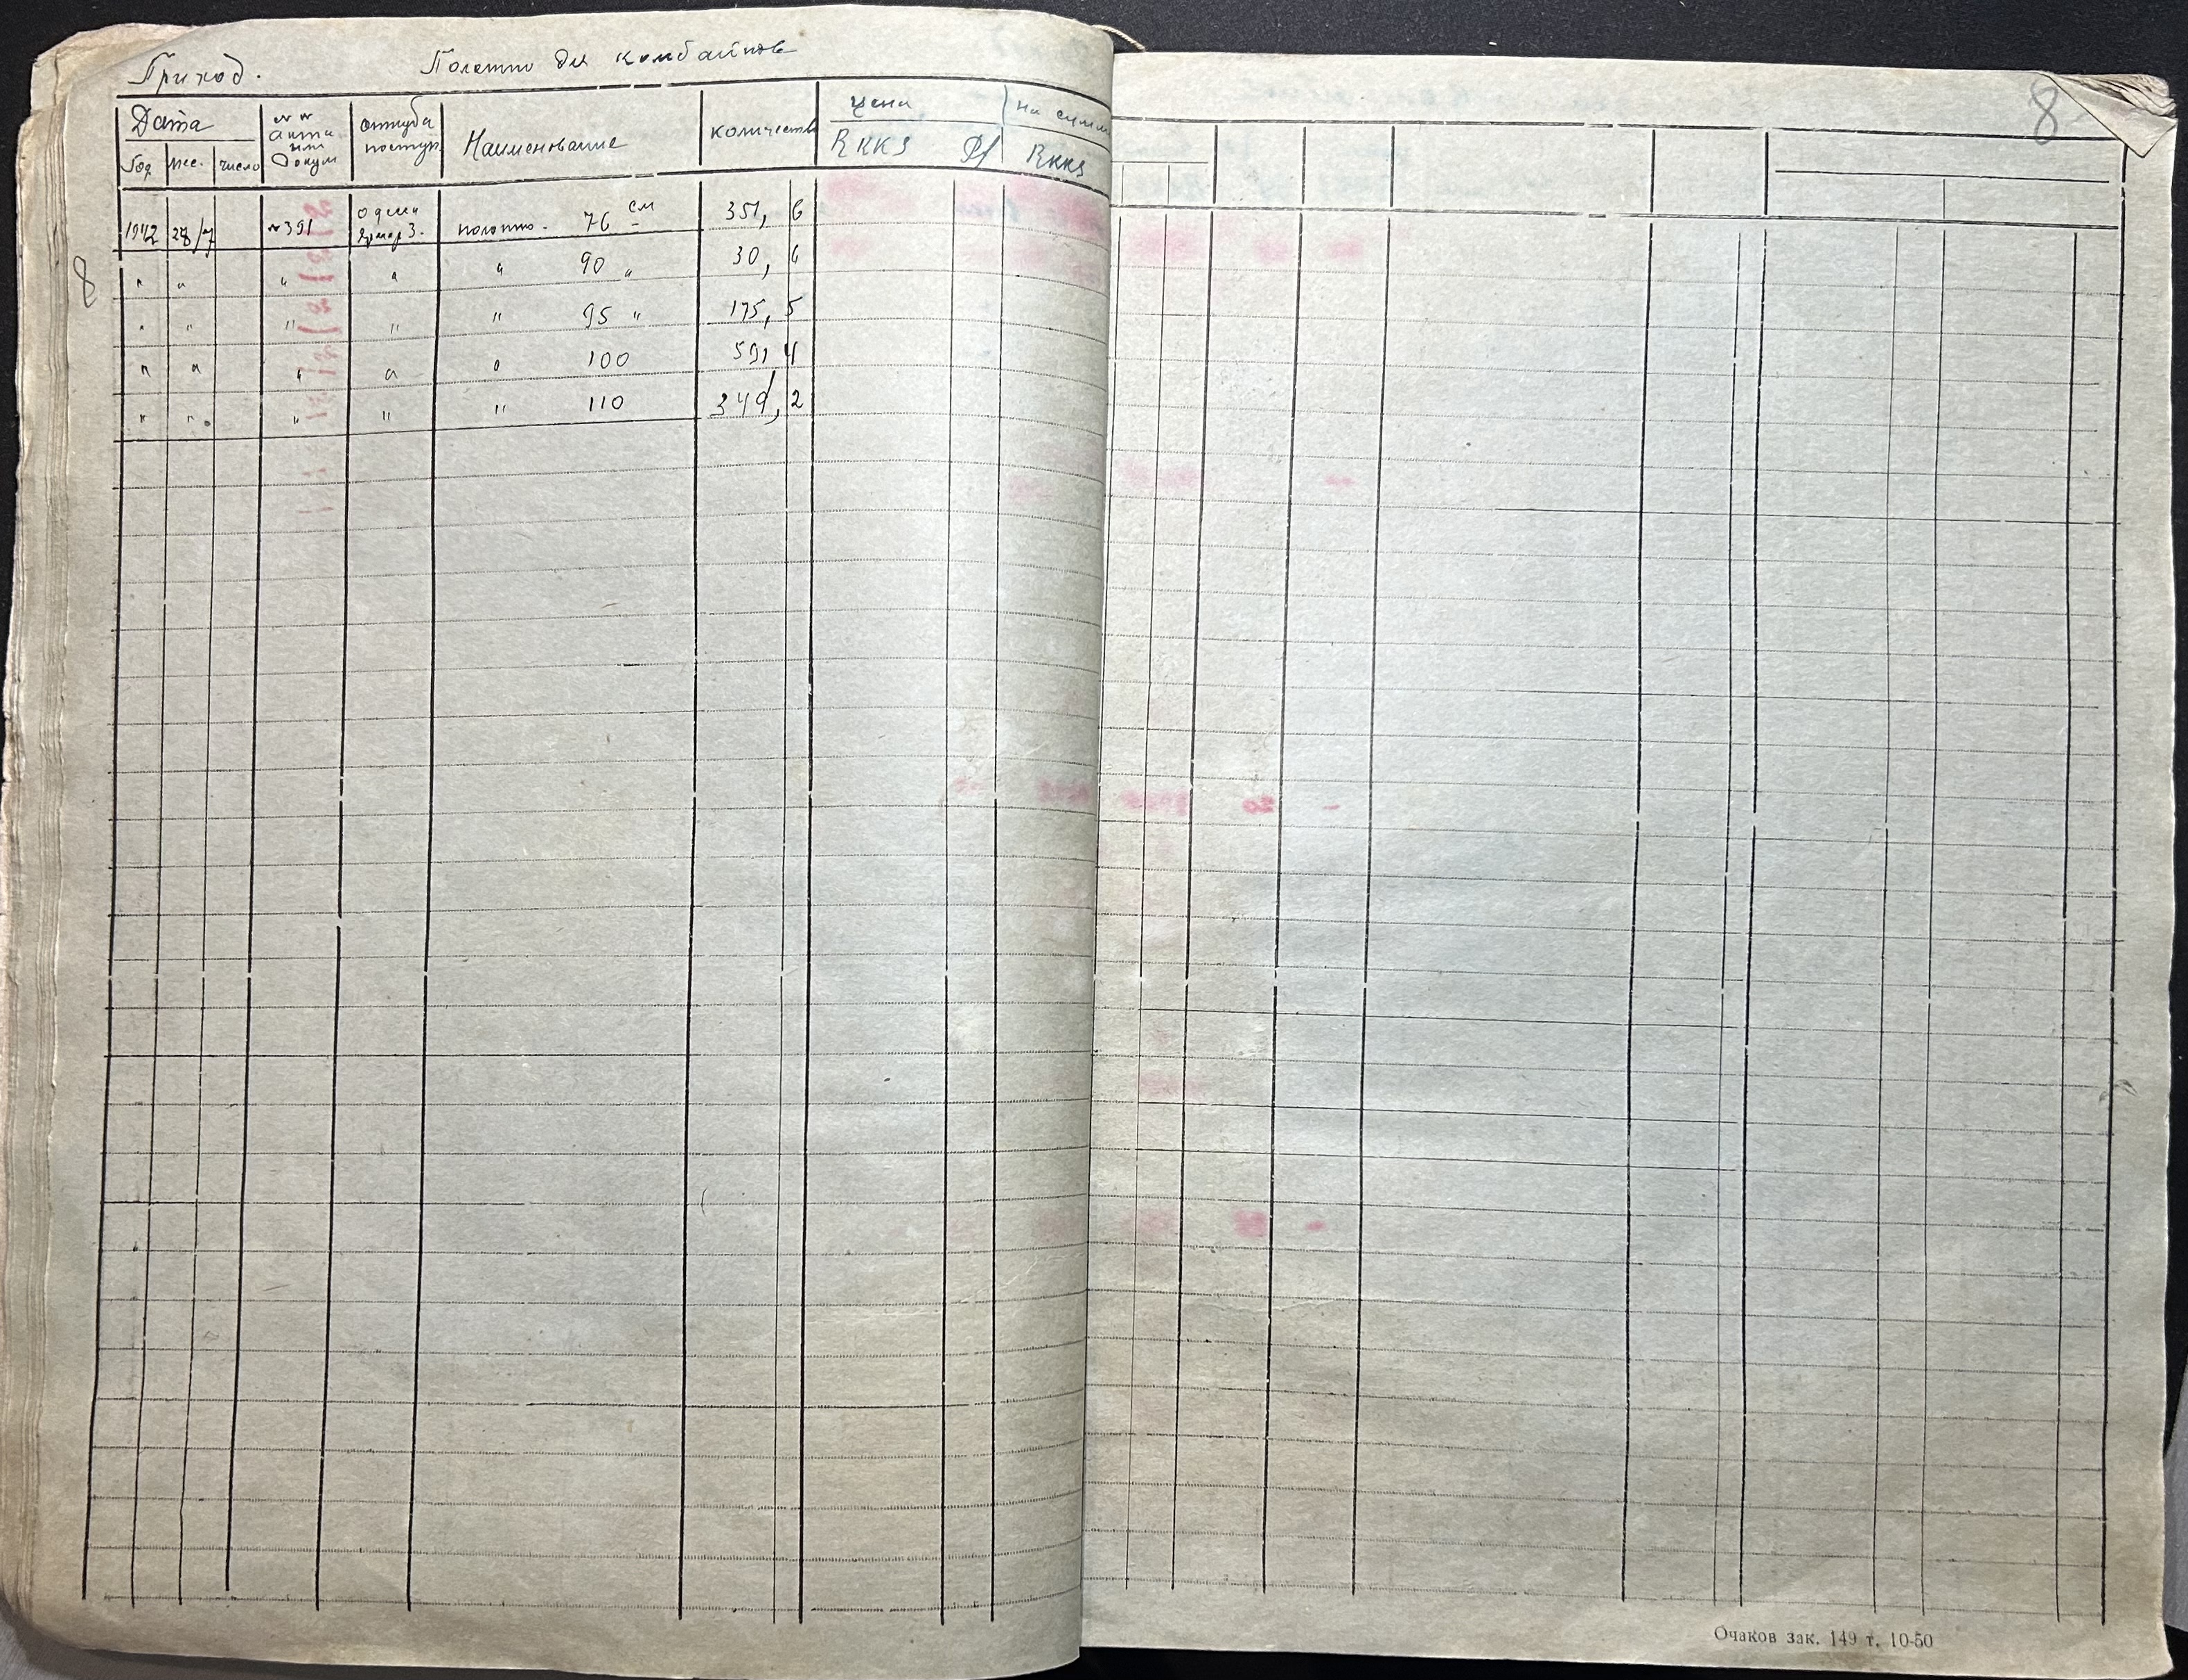 Приход. Полотно для комбайнов
8
Дата
Год мес. число
№№ акта или докум
откуда поступ
Наименование
количество
цена
RKKS Pf
на сумм
RKKS
1942 28/7 №391 полотно. 76 см 351, 6
" " " " " 90 " 30, 6
" " " " " 95 " 175, 5
" " " " " 100 591 4
" " " " " 110 349, 2
8
Очаков зак. 149 т. 10-50